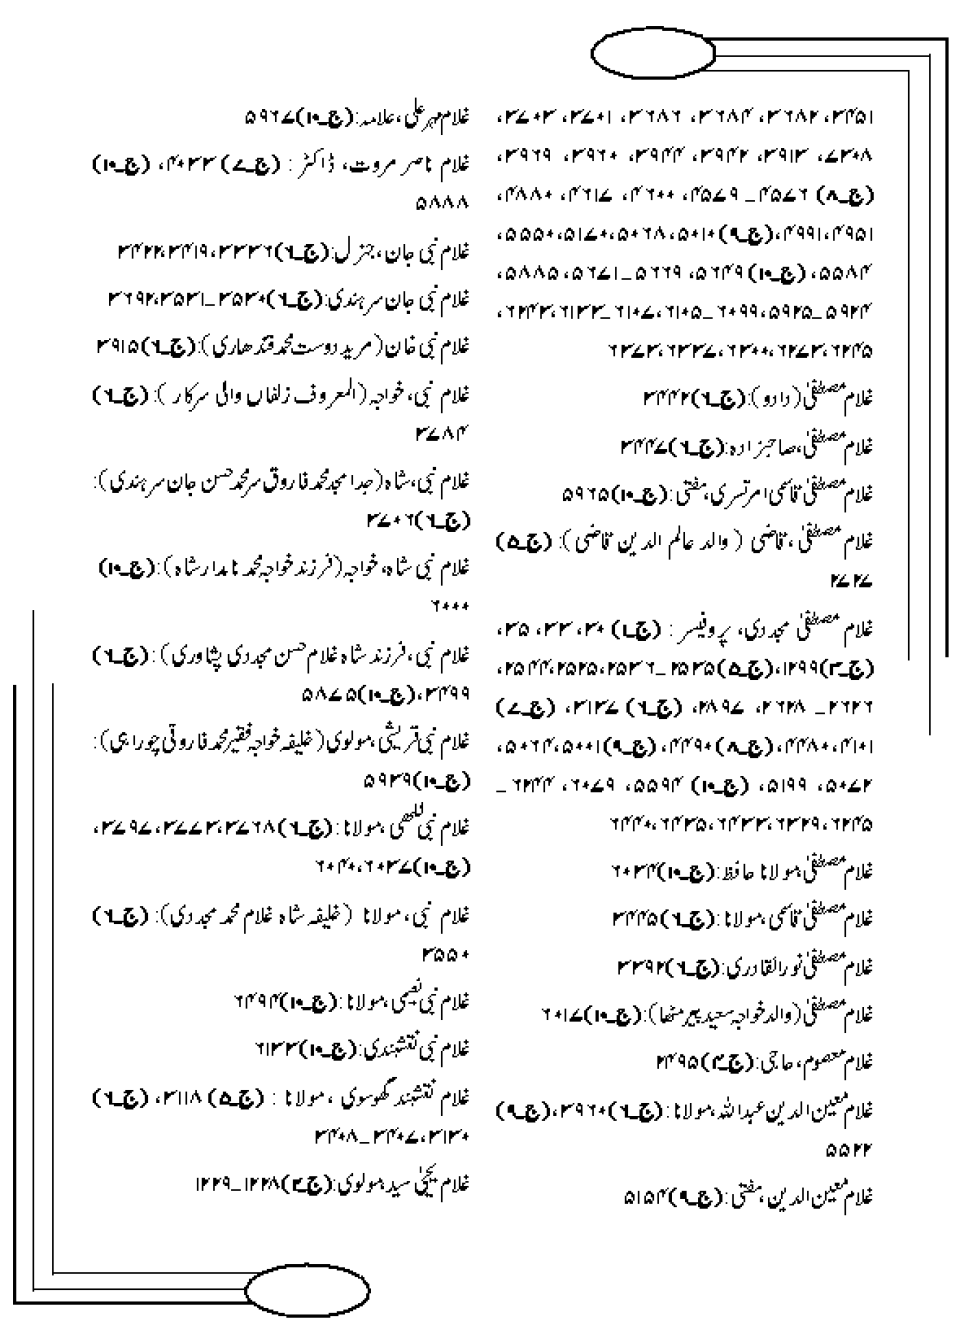 ۳۴۵۱، ۳۶۸۲، ۳۶۸۴، ۳۶۸۶، ۳۷۰۱، ۳۷۰۳،
۳۷۰۸، ۳۹۱۳، ۳۹۴۲، ۳۹۴۴، ۳۹۶۰، ۳۹۶۹،
(ج۔۸) ۴۵۷۶ـ ۴۵۷۹، ۴۶۰۰، ۴۶۱۷، ۴۸۸۰،
۴۹۵۱، ۴۹۹۱، (ج۔۹) ۵۰۱۰، ۵۰۶۸، ۵۱۷۰، ۵۵۵۰،
۵۵۸۴، (ج۔۱۰) ۵۶۴۹، ۵۶۶۹ـ۵۶۷۱، ۵۸۸۵،
۵۹۲۴ـ۵۹۲۵، ۶۰۹۹ـ۶۱۰۵، ۶۱۰۷، ۶۱۳۳، ۶۲۴۳،
۶۲۴۵، ۶۲۷۳، ۶۳۰۰، ۶۳۳۷، ۶۳۷۳
غلام مصطفیٰ (دادو): (ج۔۶) ۳۴۴۲
غلام مصطفیٰ، صاحبزادہ: (ج۔۶) ۳۴۴۷
غلام مصطفیٰ قاسمی امرتسری، مفتی: (ج۔۱۰) ۵۹۶۵
غلام مصطفیٰ، قاضی (والد عالم الدین قاضی): (ج۔۵)
۲۷۲۷
غلام مصطفیٰ مجددی، پروفیسر: (ج۔۱) ۳۰، ۳۳، ۳۵،
(ج۔۳) ۱۲۹۹، (ج۔۵) ۲۵۳۵ـ۲۵۳۶، ۲۵۲۵، ۲۵۴۴،
۲۶۲۶ـ ۲۶۲۸، ۲۸۹۷، (ج۔۶) ۳۱۳۷، (ج۔۷)
۴۱۰۱، ۴۴۸۰، (ج۔۸) ۴۴۹۰، (ج۔۹) ۵۰۰۱، ۵۰۶۴،
۵۰۷۲، ۵۱۹۹، (ج۔۱۰) ۵۵۹۴، ۶۰۷۹، ۶۲۴۴ـ
۶۲۴۵، ۶۳۲۹، ۶۴۳۳، ۶۴۳۵، ۶۴۴۰
غلام مصطفیٰ، مولانا حافظ: (ج۔۱۰) ۶۰۳۴
غلام مصطفیٰ قاسمی، مولانا: (ج۔۶) ۳۴۴۵
غلام مصطفیٰ نورالقادری: (ج۔۶) ۳۳۹۲
غلام مصطفیٰ (والد خواجہ سعید پیر مٹھا): (ج۔۱۰) ۶۰۱۷
غلام معصوم، حاجی: (ج۔۴) ۲۴۹۵
غلام معین الدین عبداللہ، مولانا: (ج۔۶) ۳۹۶۰، (ج۔۹)
۵۵۲۲
غلام معین الدین، مفتی: (ج۔۹) ۵۱۵۴
غلام مہر علی، علامہ: (ج۔۱۰) ۵۹۶۷
غلام ناصر مروت، ڈاکٹر: (ج۔۷) ۴۰۳۳، (ج۔۱۰)
۵۸۸۸
غلام نبی جان، جنرل: (ج۔۶) ۳۳۳۶، ۳۴۱۹، ۳۴۲۲
غلام نبی جان سرہندی: (ج۔۶) ۳۵۳۰ـ۳۵۳۱، ۳۶۹۲
غلام نبی خان (مرید دوست محمد قندھاری): (ج۔۶) ۳۹۱۵
غلام نبی، خواجہ (المعروف زلفاں والی سرکار): (ج۔۶)
۳۷۸۴
غلام نبی، شاہ (جد امجد محمد فاروق سر محمد حسن جان سرہندی):
(ج۔۶) ۳۷۰۶
غلام نبی شاہ، خواجہ (فرزند خواجہ محمد نامدار شاہ): (ج۔۱۰)
۶۰۰۰
غلام نبی، فرزند شاہ غلام حسن مجددی پشاوری): (ج۔۶)
۳۴۹۹، (ج۔۱۰) ۵۸۷۵
غلام نبی قریشی، مولوی (خلیفہ خواجہ فقیر محمد فاروقی چوراہی):
(ج۔۱۰) ۵۹۳۹
غلام نبی للّٰھی، مولانا: (ج۔۶) ۳۷۶۸، ۳۷۷۳، ۳۷۹۷،
(ج۔۱۰) ۶۰۳۷، ۶۰۴۰
غلام نبی، مولانا (خلیفہ شاہ غلام محمد مجددی): (ج۔۶)
۳۵۵۰
غلام نبی نعیمی، مولانا: (ج۔۱۰) ۶۴۹۴
غلام نبی نقشبندی: (ج۔۱۰) ۶۱۳۳
غلام نقشبند گھوسوی، مولانا: (ج۔۵) ۳۱۱۸، (ج۔۶)
۳۱۳۰، ۳۴۰۷ـ۳۴۰۸
غلام یحییٰ سید، مولوی: (ج۔۳) ۱۲۲۸ـ۱۲۲۹